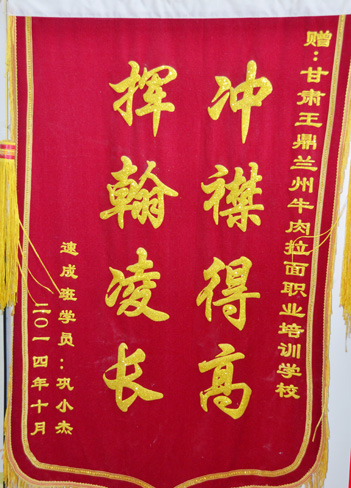 赠：甘肃王鼎兰州牛肉拉面职业培训学校
冲襟得高
挥翰凌长
速成班学员：巩小杰
二〇一四年十月